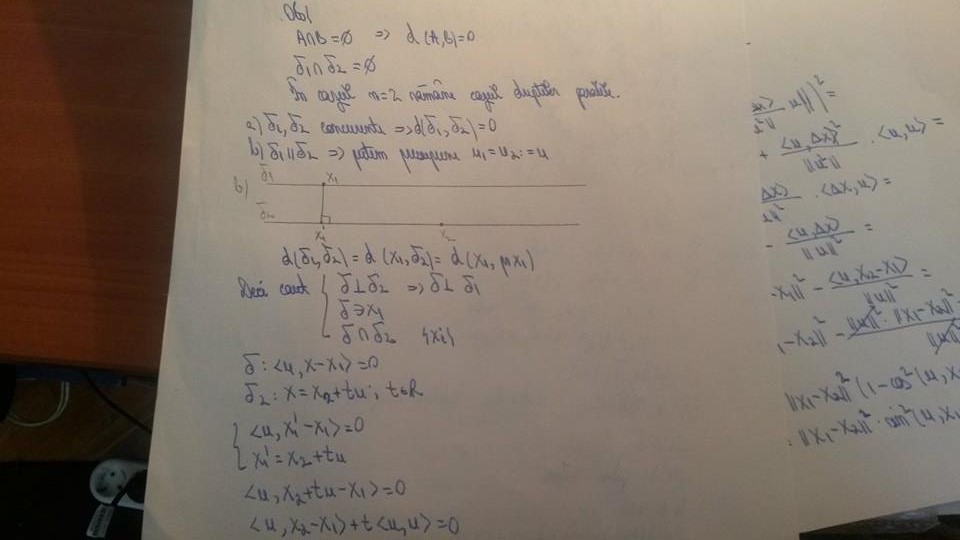 Obs!
A∩B=∅ => d(A,B)=0
δ1∩δ2=∅
În cazul n=2 rămâne cazul dreptelor paralele.
a) δ1,δ2 concurente => d(δ1,δ2)=0
b) δ1∥δ2 => putem presupune u1=u2:=u
b)
δ1 x1
δ2 x1' x2
d(δ1,δ2)=d(x1,δ2)=d(x1, pr x1)
Deci caut { δ⊥δ2 => δ⊥δ1
δ∋x1
δ∩δ2 {x1'}
δ:<u,x-x1>=0
δ2: x=x2+tu; t∈R
{ <u,x1'-x1>=0
x1'=x2+tu
<u,x2+tu-x1>=0
<u,x2-x1>+t<u,u>=0
u||²=
+ <u,Δx>²/||u|| · <u,u>=
· <Δx,u>=
- <u,Δx>/||u||²=
-x1||² - <u,x2-x1>/||u||²=
-x2||² - ||u||²·||x1-x2||²
||x1-x2||²(1-cos²(u,x
||x1-x2||²·sin²(u,x1